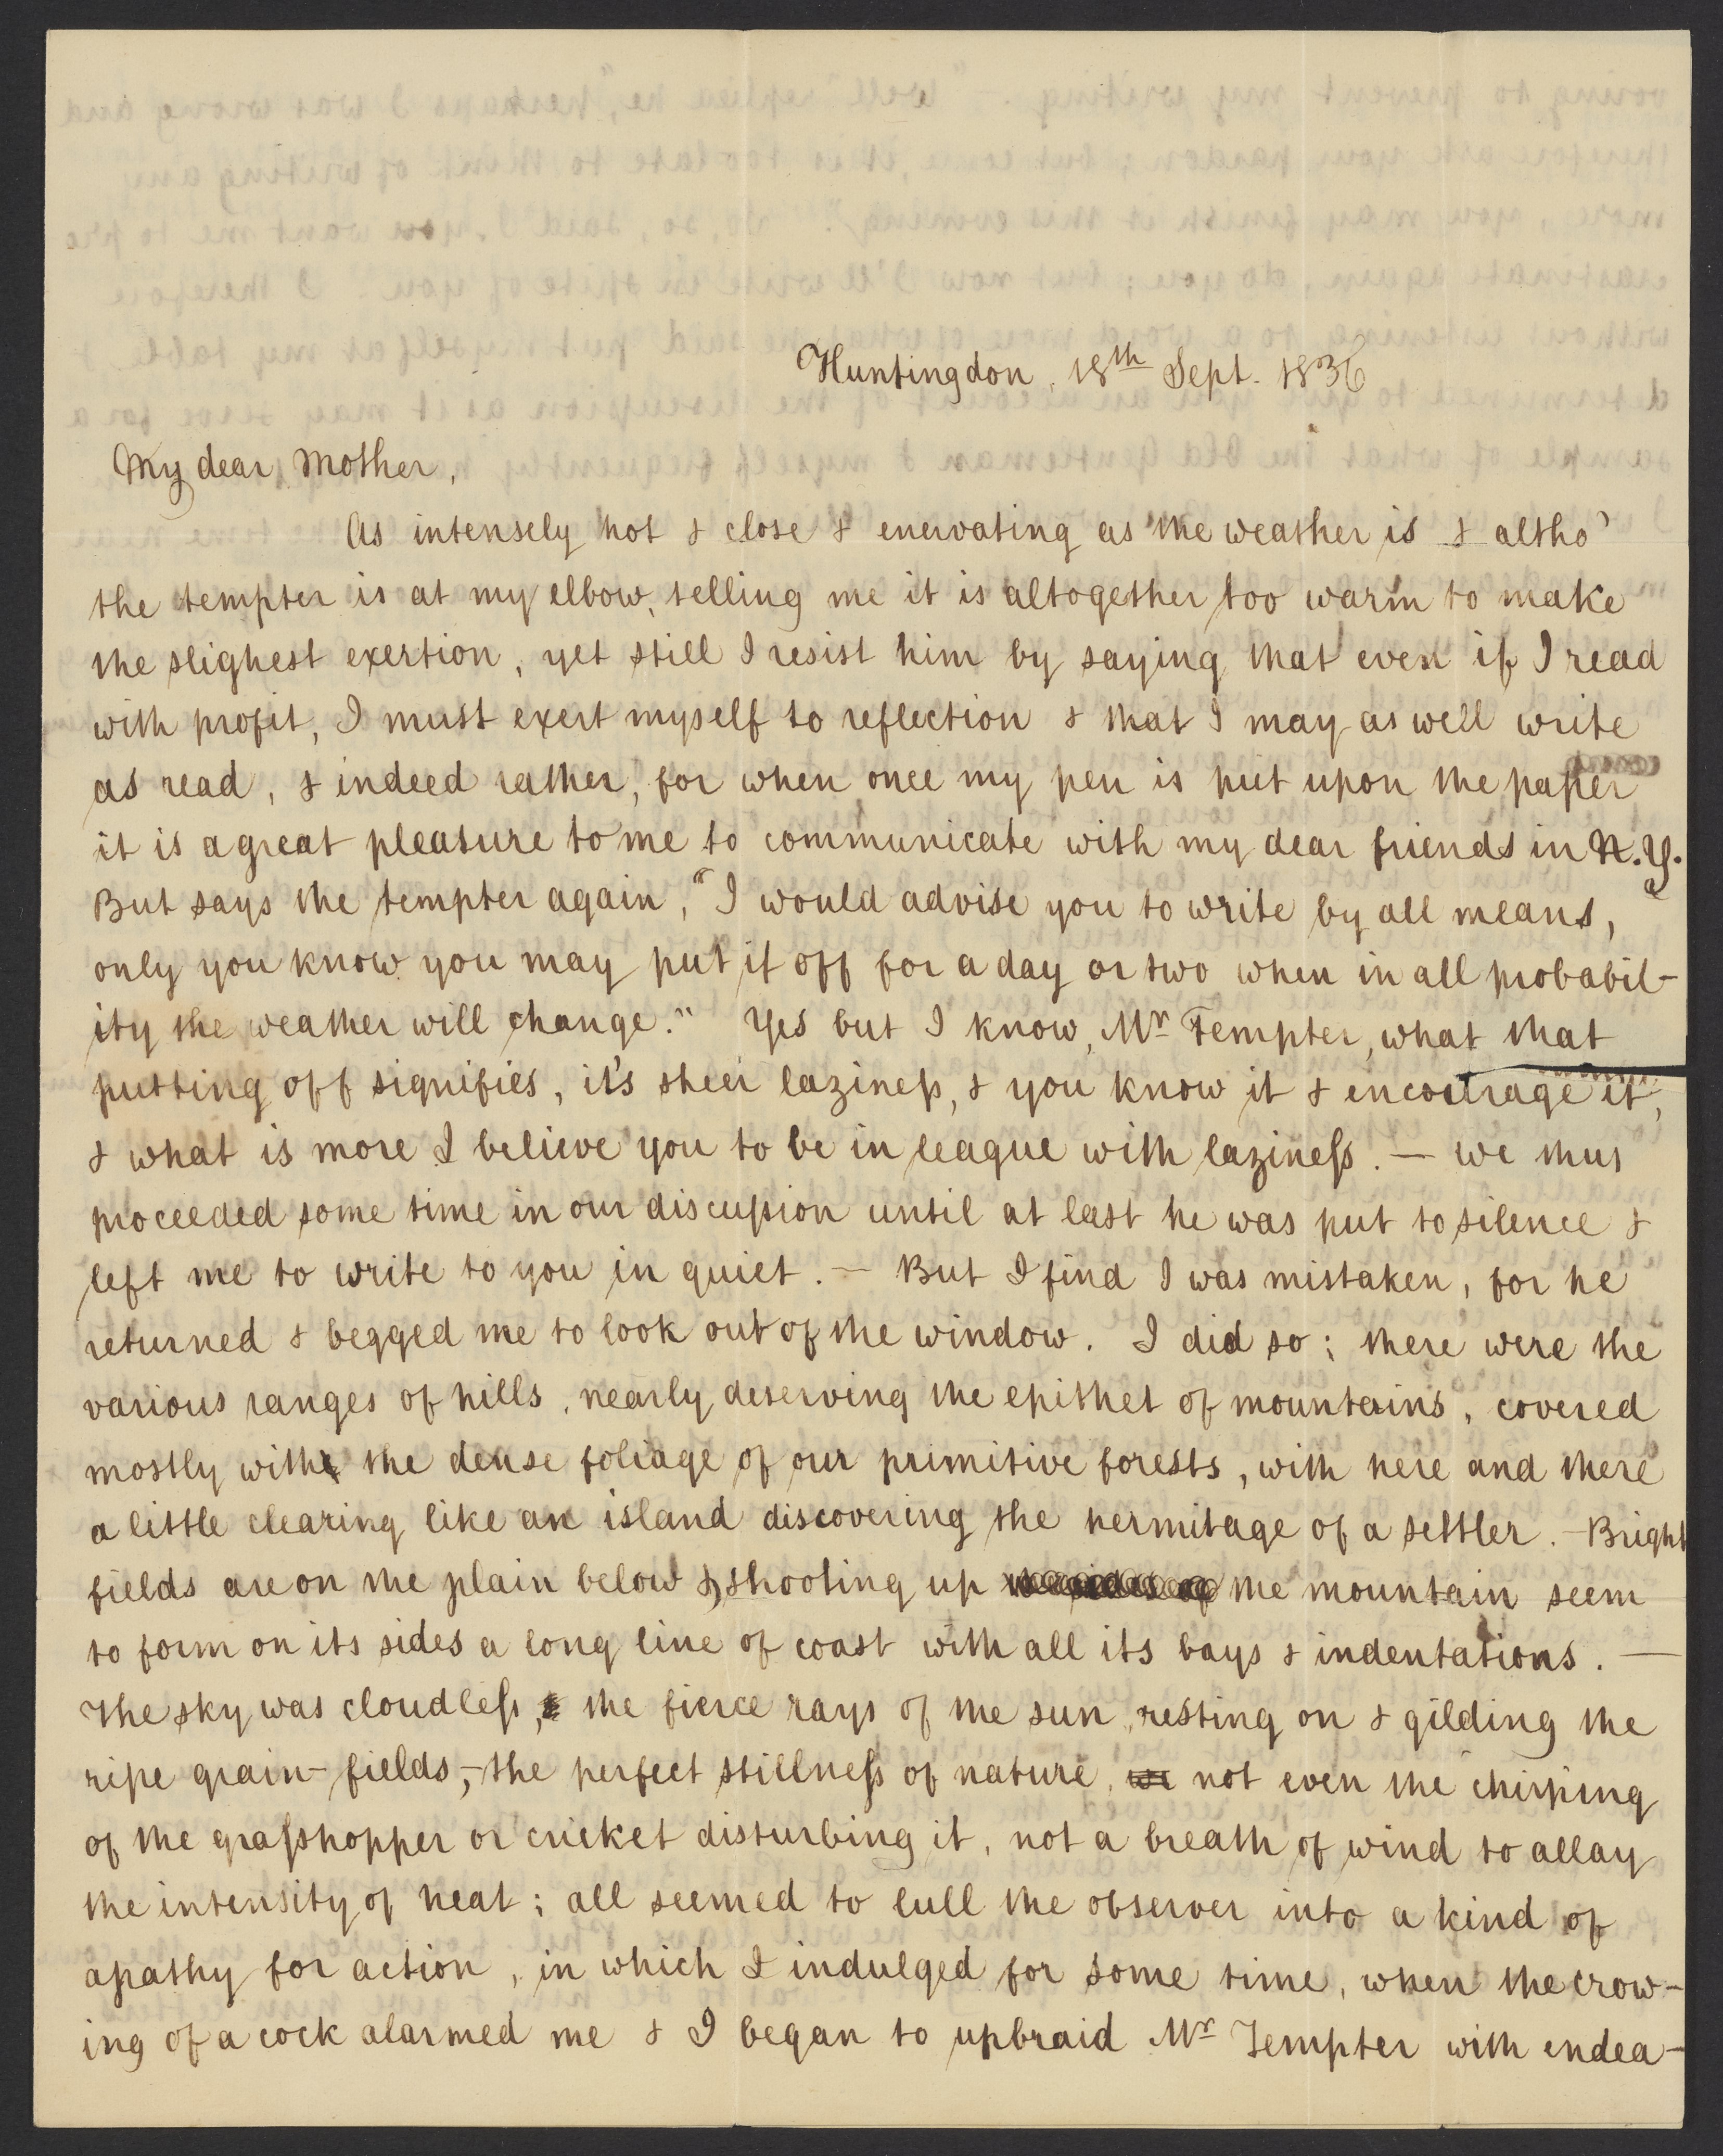 Huntingdon, 18th Sept. 1836
My dear Mother,
As intensely hot & close & enervating as the weather is & altho'
the tempter is at my elbow, telling me it is altogether too warm to make
the slighest exertion, yet still I resist him by saying that even if I read
with profit, I must exert myself to reflection & that I may as well write
as read, & indeed rather, for when once my pen is put upon the paper
it is a great pleasure to me to communicate with my dear friends in N.Y.
But says the tempter again, "I would advise you to write by all means,
only you know you may put it off for a day or two when in all probabil-
ity the weather will change." Yes but I know, Mr Tempter, what that
putting off signifies, it's sheer laziness, & you know it & encourage it,
& what is more I believe you to be in league with laziness. — We thus
proceeded some time in our discussion until at last he was put to silence &
left me to write to you in quiet. — But I find I was mistaken, for he
returned & begged me to look out of the window. I did so; there were the
various ranges of hills, nearly deserving the epithet of mountains, covered
mostly with the dense foliage of our primitive forests, with here and there
a little clearing like an island discovering the hermitage of a settler. — Bright
fields are on the plain below &, shooting up the mountain seem
to form on its sides a long line of coast with all its bays & indentations. —
The sky was cloudless, the fierce rays of the sun, resting on & gilding the
ripe grain-fields, – the perfect stillness of nature, not even the chirping
of the grasshopper or cricket disturbing it, not a breath of wind to allay
the intensity of heat; all seemed to lull the observer into a kind of
apathy for action, in which I indulged for some time, when the crow-
ing of a cock alarmed me & I began to upbraid Mr Tempter with endea-